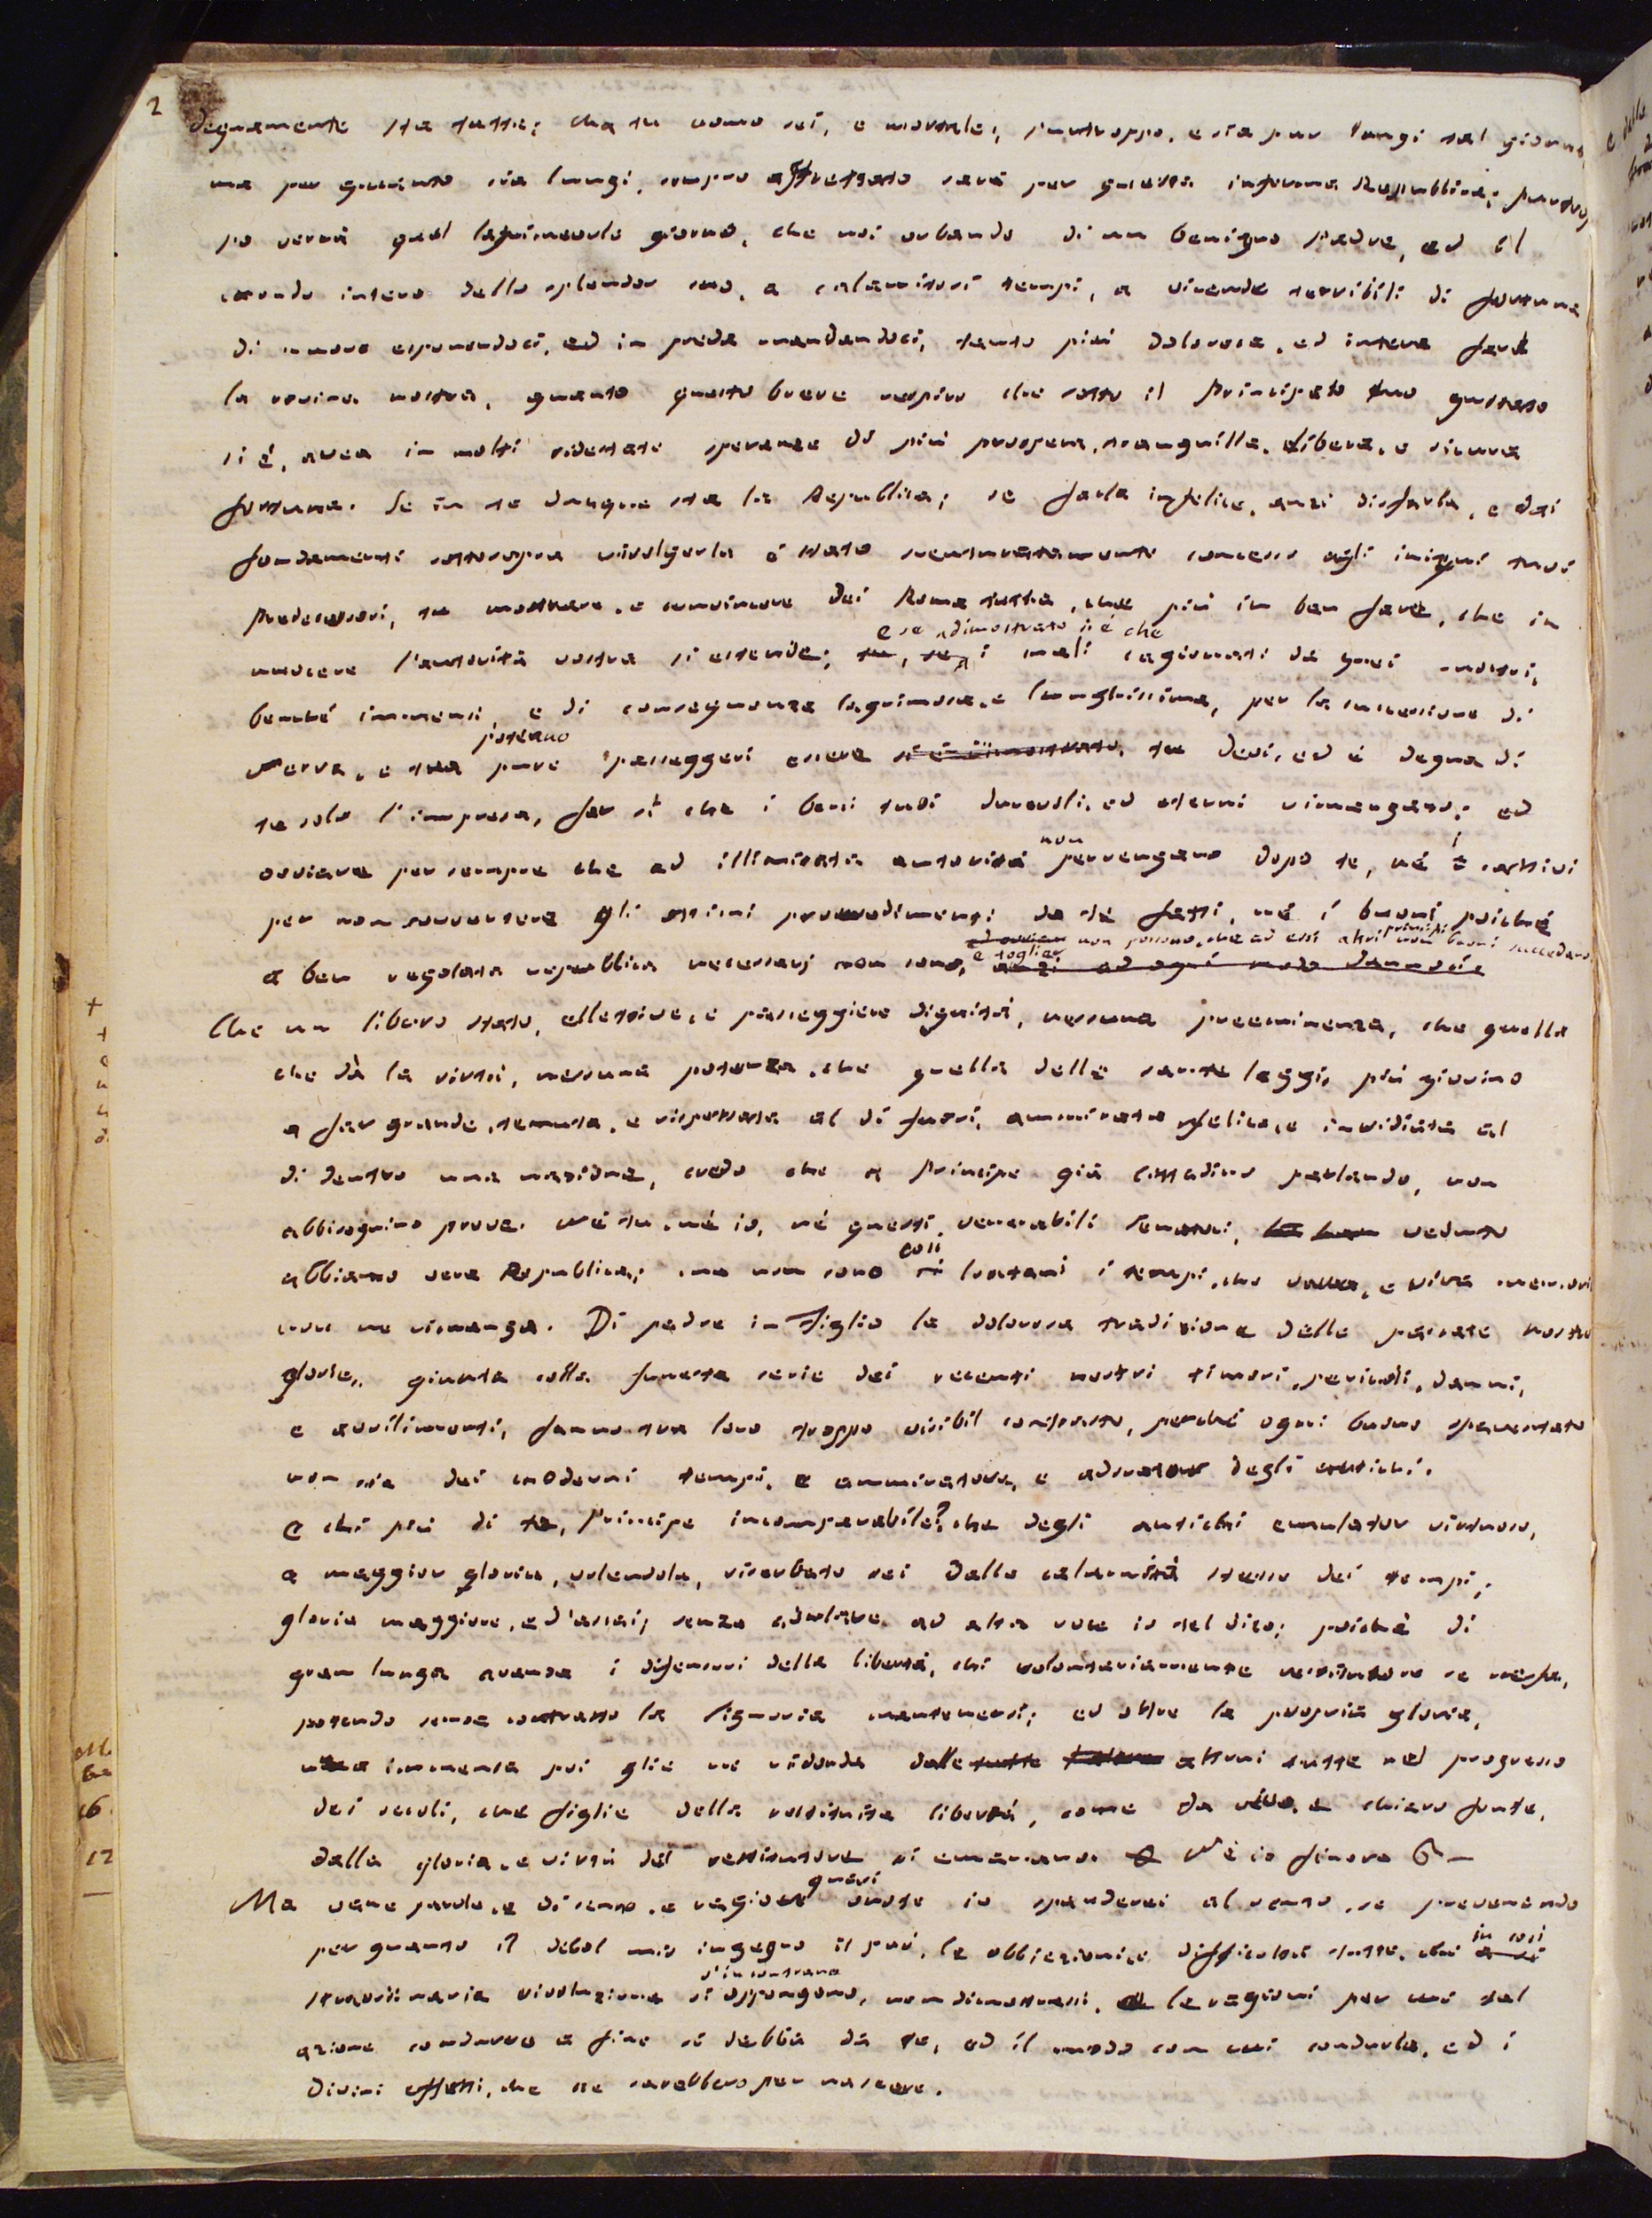 2
degnamente sta tutta: ma tu uomo sei, e mortale; purtroppo, e sia pur lungi tal giorno
ma per quanto sia lungi, sempre affrettato sarà per questa inferma Repubblica; purtrop
po verrà quel lagrimevole giorno, che noi orbando di un benigno padre, ed il
mondo intero dello splendor suo, a calamitosi tempi, a vicende terribili di fortuna
di nuovo esponendoci, ed in preda mandandoci, tanto più dolorosa, ed intera farà
la rovina nostra, quanto questo breve respiro che sotto il Principato tuo gustato
si è, avea in molti ridestate speranze di più prospera, tranquilla, libera, e sicura
fortuna. Se in te dunque sta la Republica; se farla infelice, anzi disfarla, e dai
fondamenti sottosopra rivolgerla è stato sventuratamente concesso agli iniqui tuoi
predecessori, tu mostrare, e convincere dei Roma tutta, che più in ben fare, che in
e se dimostrato si è che
nuocere l'autorità vostra si estende; tu, se, i mali cagionati da quei mostri,
benché immensi, e di conseguenza lagrimosa, e lunghissima, per la successione di
poteano
Nerva, e tua pure passeggeri essere si è dimostrato, tu devi, ed è degna di
te solo l'impresa, far sì che i beni tuoi durevoli, ed eterni rimangano; ed
non i
ovviare per sempre che ad illimitata autorità pervengano dopo te, né è cattivi
per non sovvertere gli ottimi provvedimenti da te fatti, né i buoni, poiché
e toglier non possono, che ad essi altri principi non buoni succedano
a ben regolata repubblica necessarj non sono, anzi ad ogni modo dannosi.
Che un libero stato, ellettive, e passeggiere dignità, nessuna preeminenza, che quella
che dà la virtù, nessuna potenza, che quella delle sante leggi, più giovino
a far grande, temuta, e rispettata al di fuori, ammirata, felice, e invidiata al
di dentro una nazione, credo che a Principe già cittadino parlando, non
abbisognino prove. Né tu, né io, né questi venerabili Senatori, veduto
così
abbiamo vera Republica; ma non sono si lontani i tempi, che e viva memoria
non ne rimanga. Di padre in figlio la dolorosa tradizione delle passate nostre
glorie, giunta colla funesta serie dei recenti nostri timori, pericoli, danni,
e avvilimenti, fanno tra loro troppo visibil contrasto, perché ogni buono spaventato
non sia dei moderni tempi, e ammiratore, e adoratore degli antichi.
E chi più di te, Principe incomparabile? che degli antichi emulator virtuoso,
a maggior gloria, volendola, riserbato sei dalla calamità stessa dei tempi;
gloria maggiore, ed'assai, senza adulare ad alta voce io tel dico; poiché di
gran lunga avanza i difensori della libertà, chi volontariamente restitutore se ne fa,
potendo senza contrasto la Signoria mantenersi; ed oltre la propria gloria,
una immensa poi glie ne ridonda dalle tutte altrui tutte nel progresso
dei secoli, che figlie della restituita libertà, come da vivo, e chiaro fonte,
dalla gloria, e virtù del restitutore si emanano. Né io finora
quasi
Ma vane parole, e di senno, e ragion vuote io spanderei al vento, se prevenendo
in così
per quanto il debol mio ingegno il può, le obbiezioni, e difficoltà tutte, che a sì
s'incontrano
straordinaria rivoluzione si oppongono, non dimostrassi, le ragioni per cui tal
azione condurre a fine si debba da te, ed il modo con cui condurla, ed i
divini effetti, che ne sarebbero per nascere.